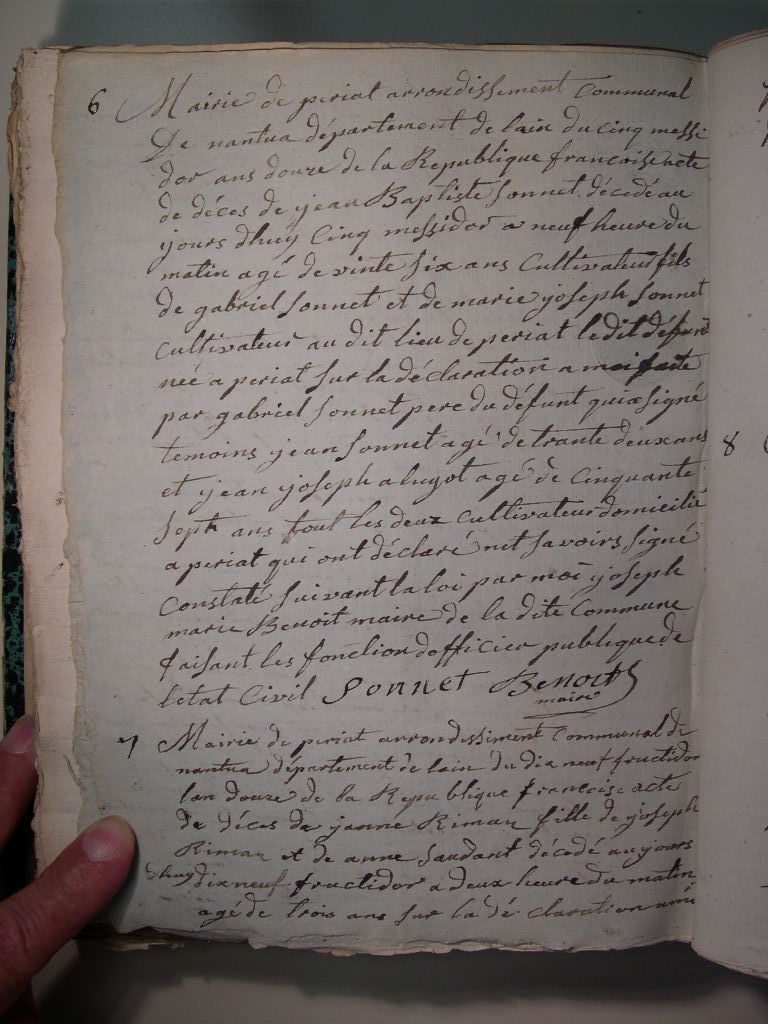 6 Mairie de periat arrondissement Communal
De nantua département de lain du cinq messi
dor ans douze de la Republique francoise acte
de déces de jean Baptiste Sonnet décedé au
jours dhuy Cinq messidor a neuf heure du
matin agé de vinte six ans Cultivateur fils
de gabriel Sonnet et de marie joseph Sonnet
Cultivateur au dit lieu de periat le dit défunt
née a periat sur la déclaration a moi faite
par gabriel Sonnet pere du défunt qui a signé
temoins jean Sonnet agé de trante deux ans
et jean joseph alugot agé de Cinquante
Sept ans tout les deux Cultivateur domicilié
a periat qui ont déclaré net savoirs signé
Constaté suivant la loi par moi joseph
marie Benoit maire de la dite Commune
faisant les fonction dofficier publique de
letat Civil Sonnet Benoit
maire
7 Mairie de periat arrondissiment Communal de
nantua département de lain du dix neuf fructidor
lan douze de la Republique francoise acte
de déces de janne Rimau fille de joseph
Rimau et de anne Saudant décedé au jours
dhuy dix neuf fructidor a deux heure du matin
agé de trois ans sur la déclaration a mi
8